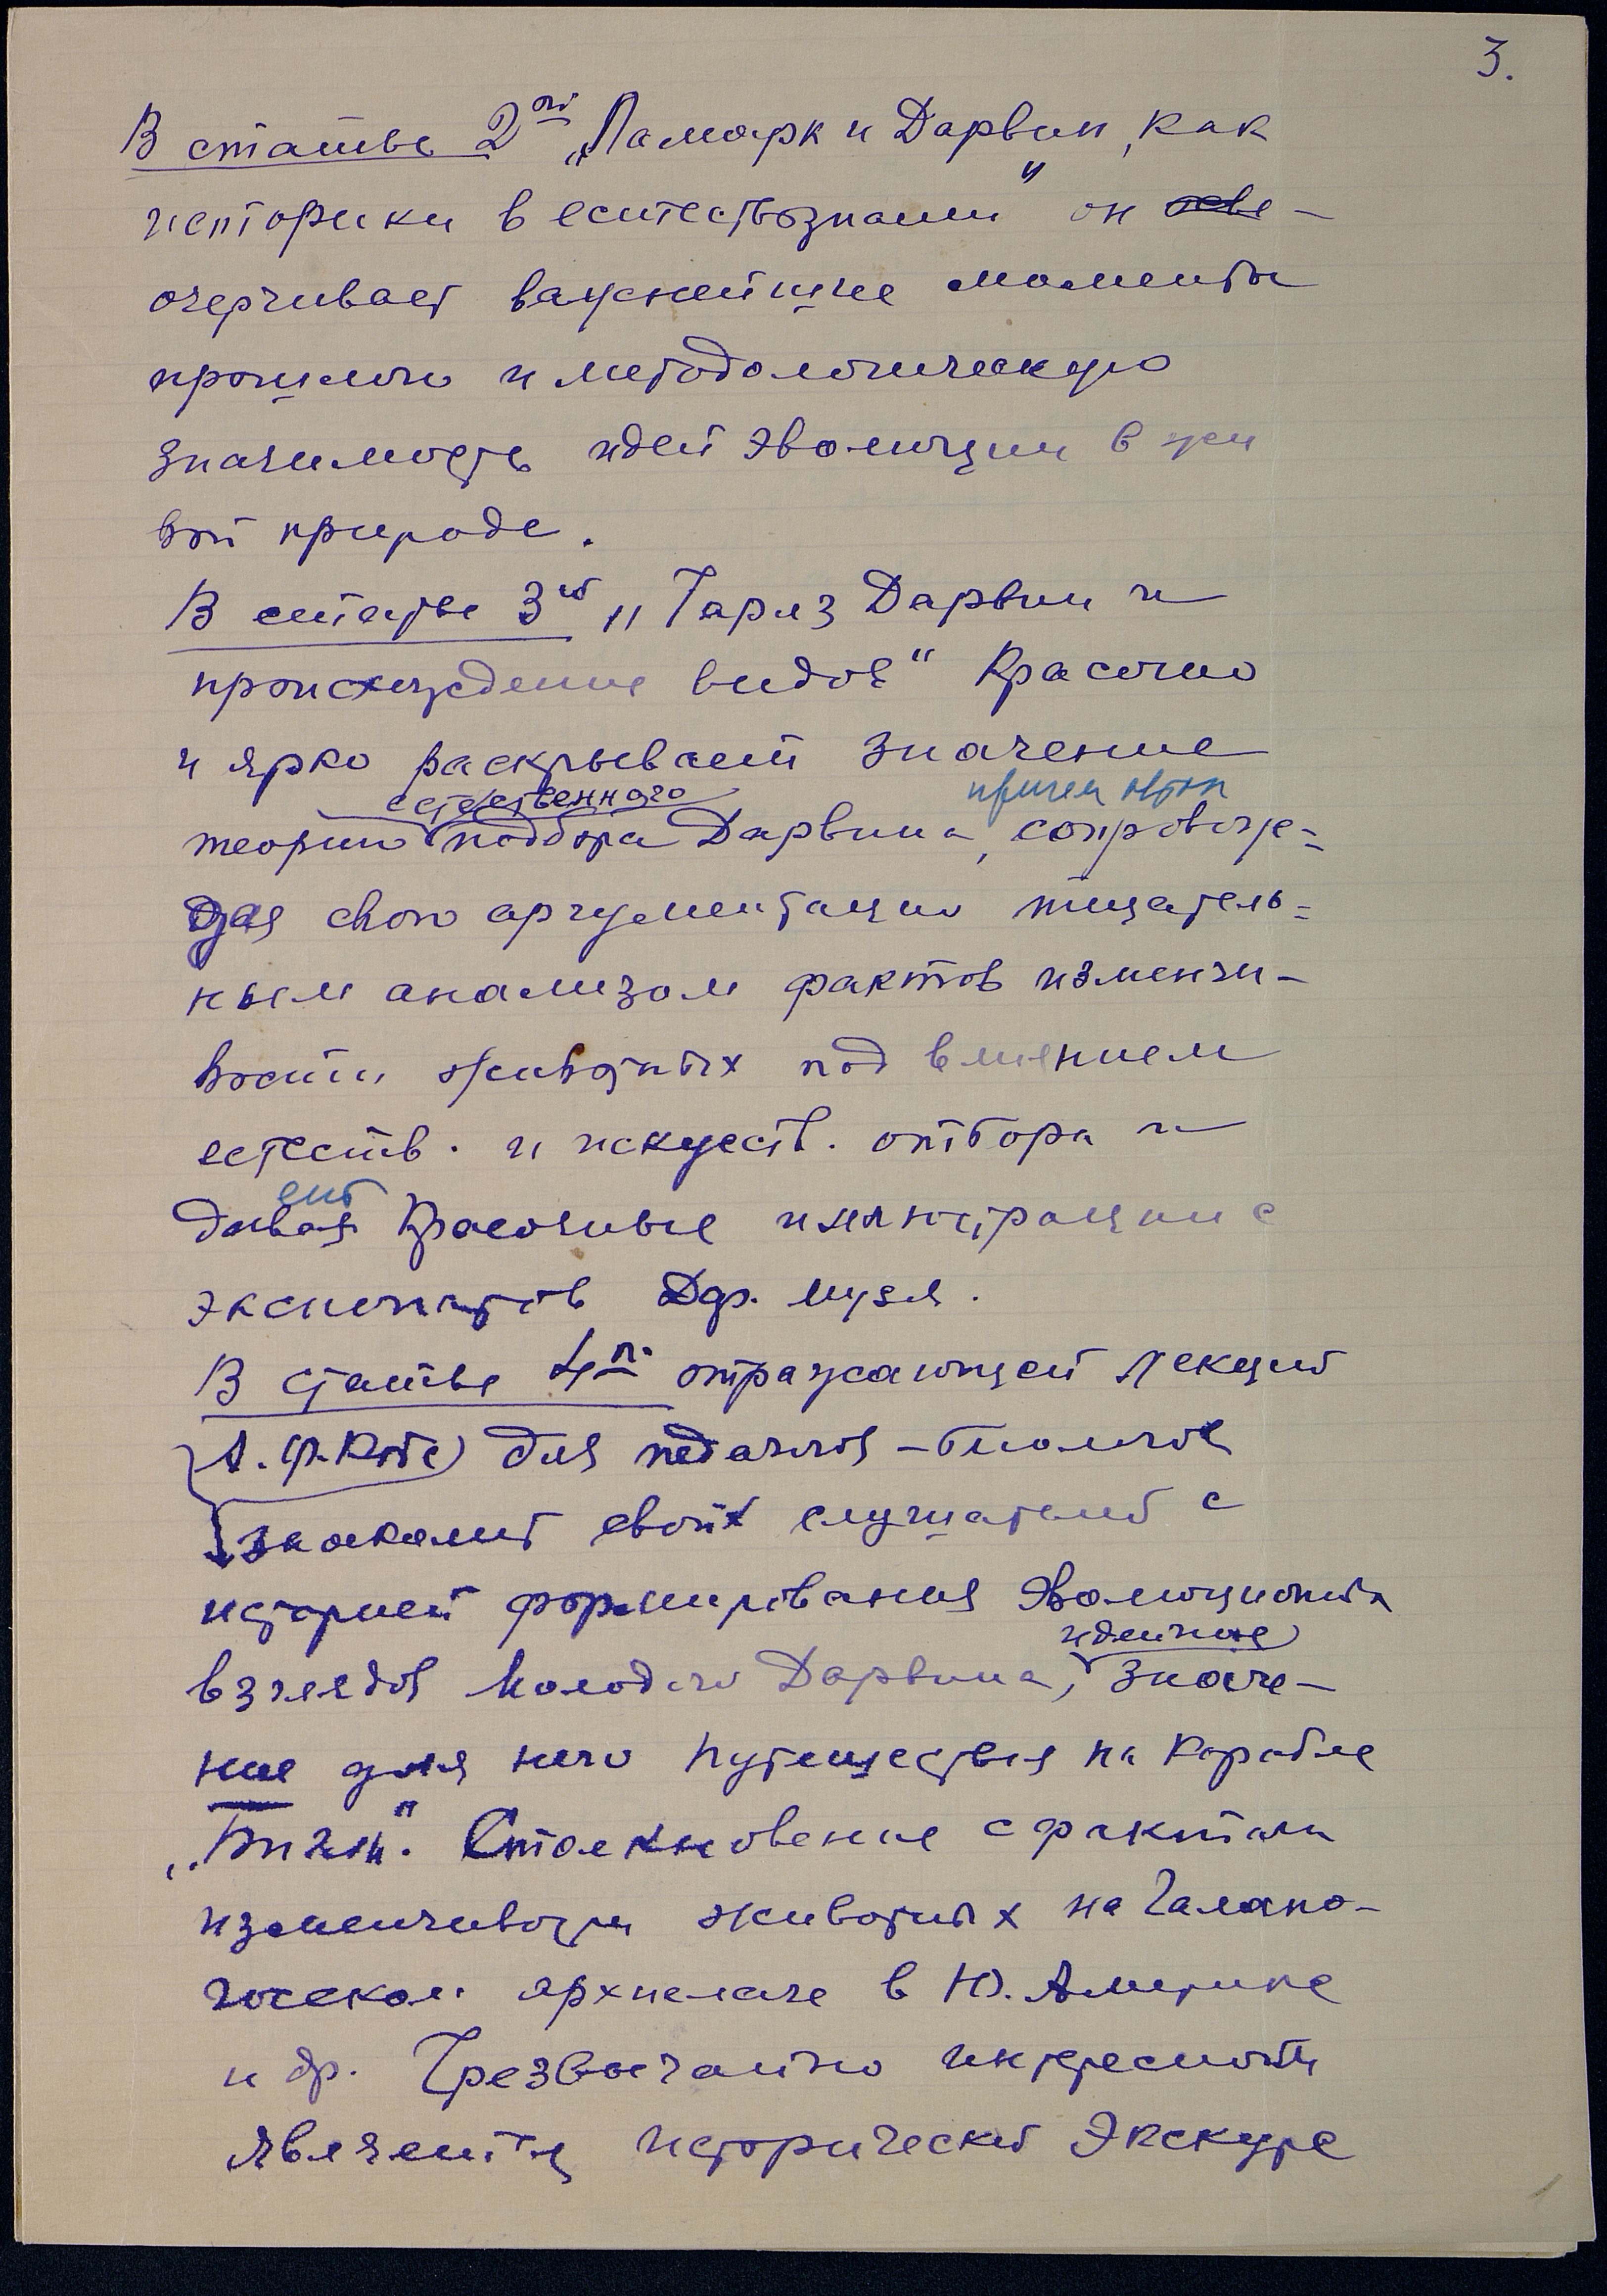 3.
В статье 2ой „Ламарк и Дарвин, как
историки в естествознании" он осве-
очерчивает важнейшие моменты
прошлого и методологическую
значимость идеи эволюции в жи
вой природе.
В статье 3ей „Чарлз Дарвин и
происхождение видов" красочно
и ярко раскрывает значение
естественного причем автор
теории подбора Дарвина, сопровож-
дая свою аргументацию тщатель-
ным анализом фактов изменчи-
вости животных под влиянием
естеств. и искуств. отбора и
давая красочные иллюстрации с
экспонатов Дар. музея.
В статье 4й отражающей лекций
А.Ф. Котс для педагогов-биологов
знакомит своих слушателей с
историей формирования эволюционных
идейное
взглядов молодого Дарвина, значе-
ние для него путешествия на корабле
„Бигль". Столкновение с фактами
изменчивости животных на Галапа-
госском архипелаге в Ю. Америке
и др. Чрезвычайно интересным
является исторический экскурс